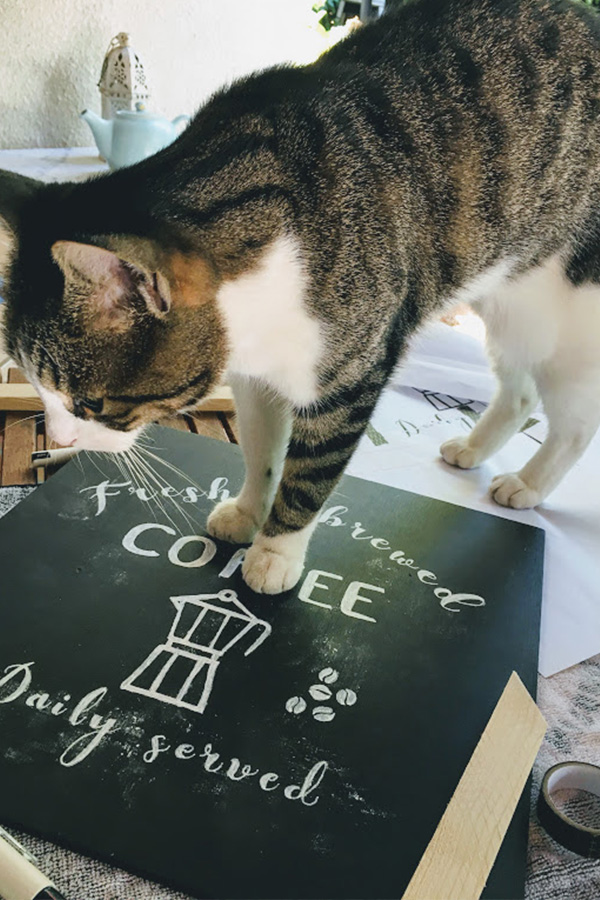 Fresh brewed
COFFEE
Daily served